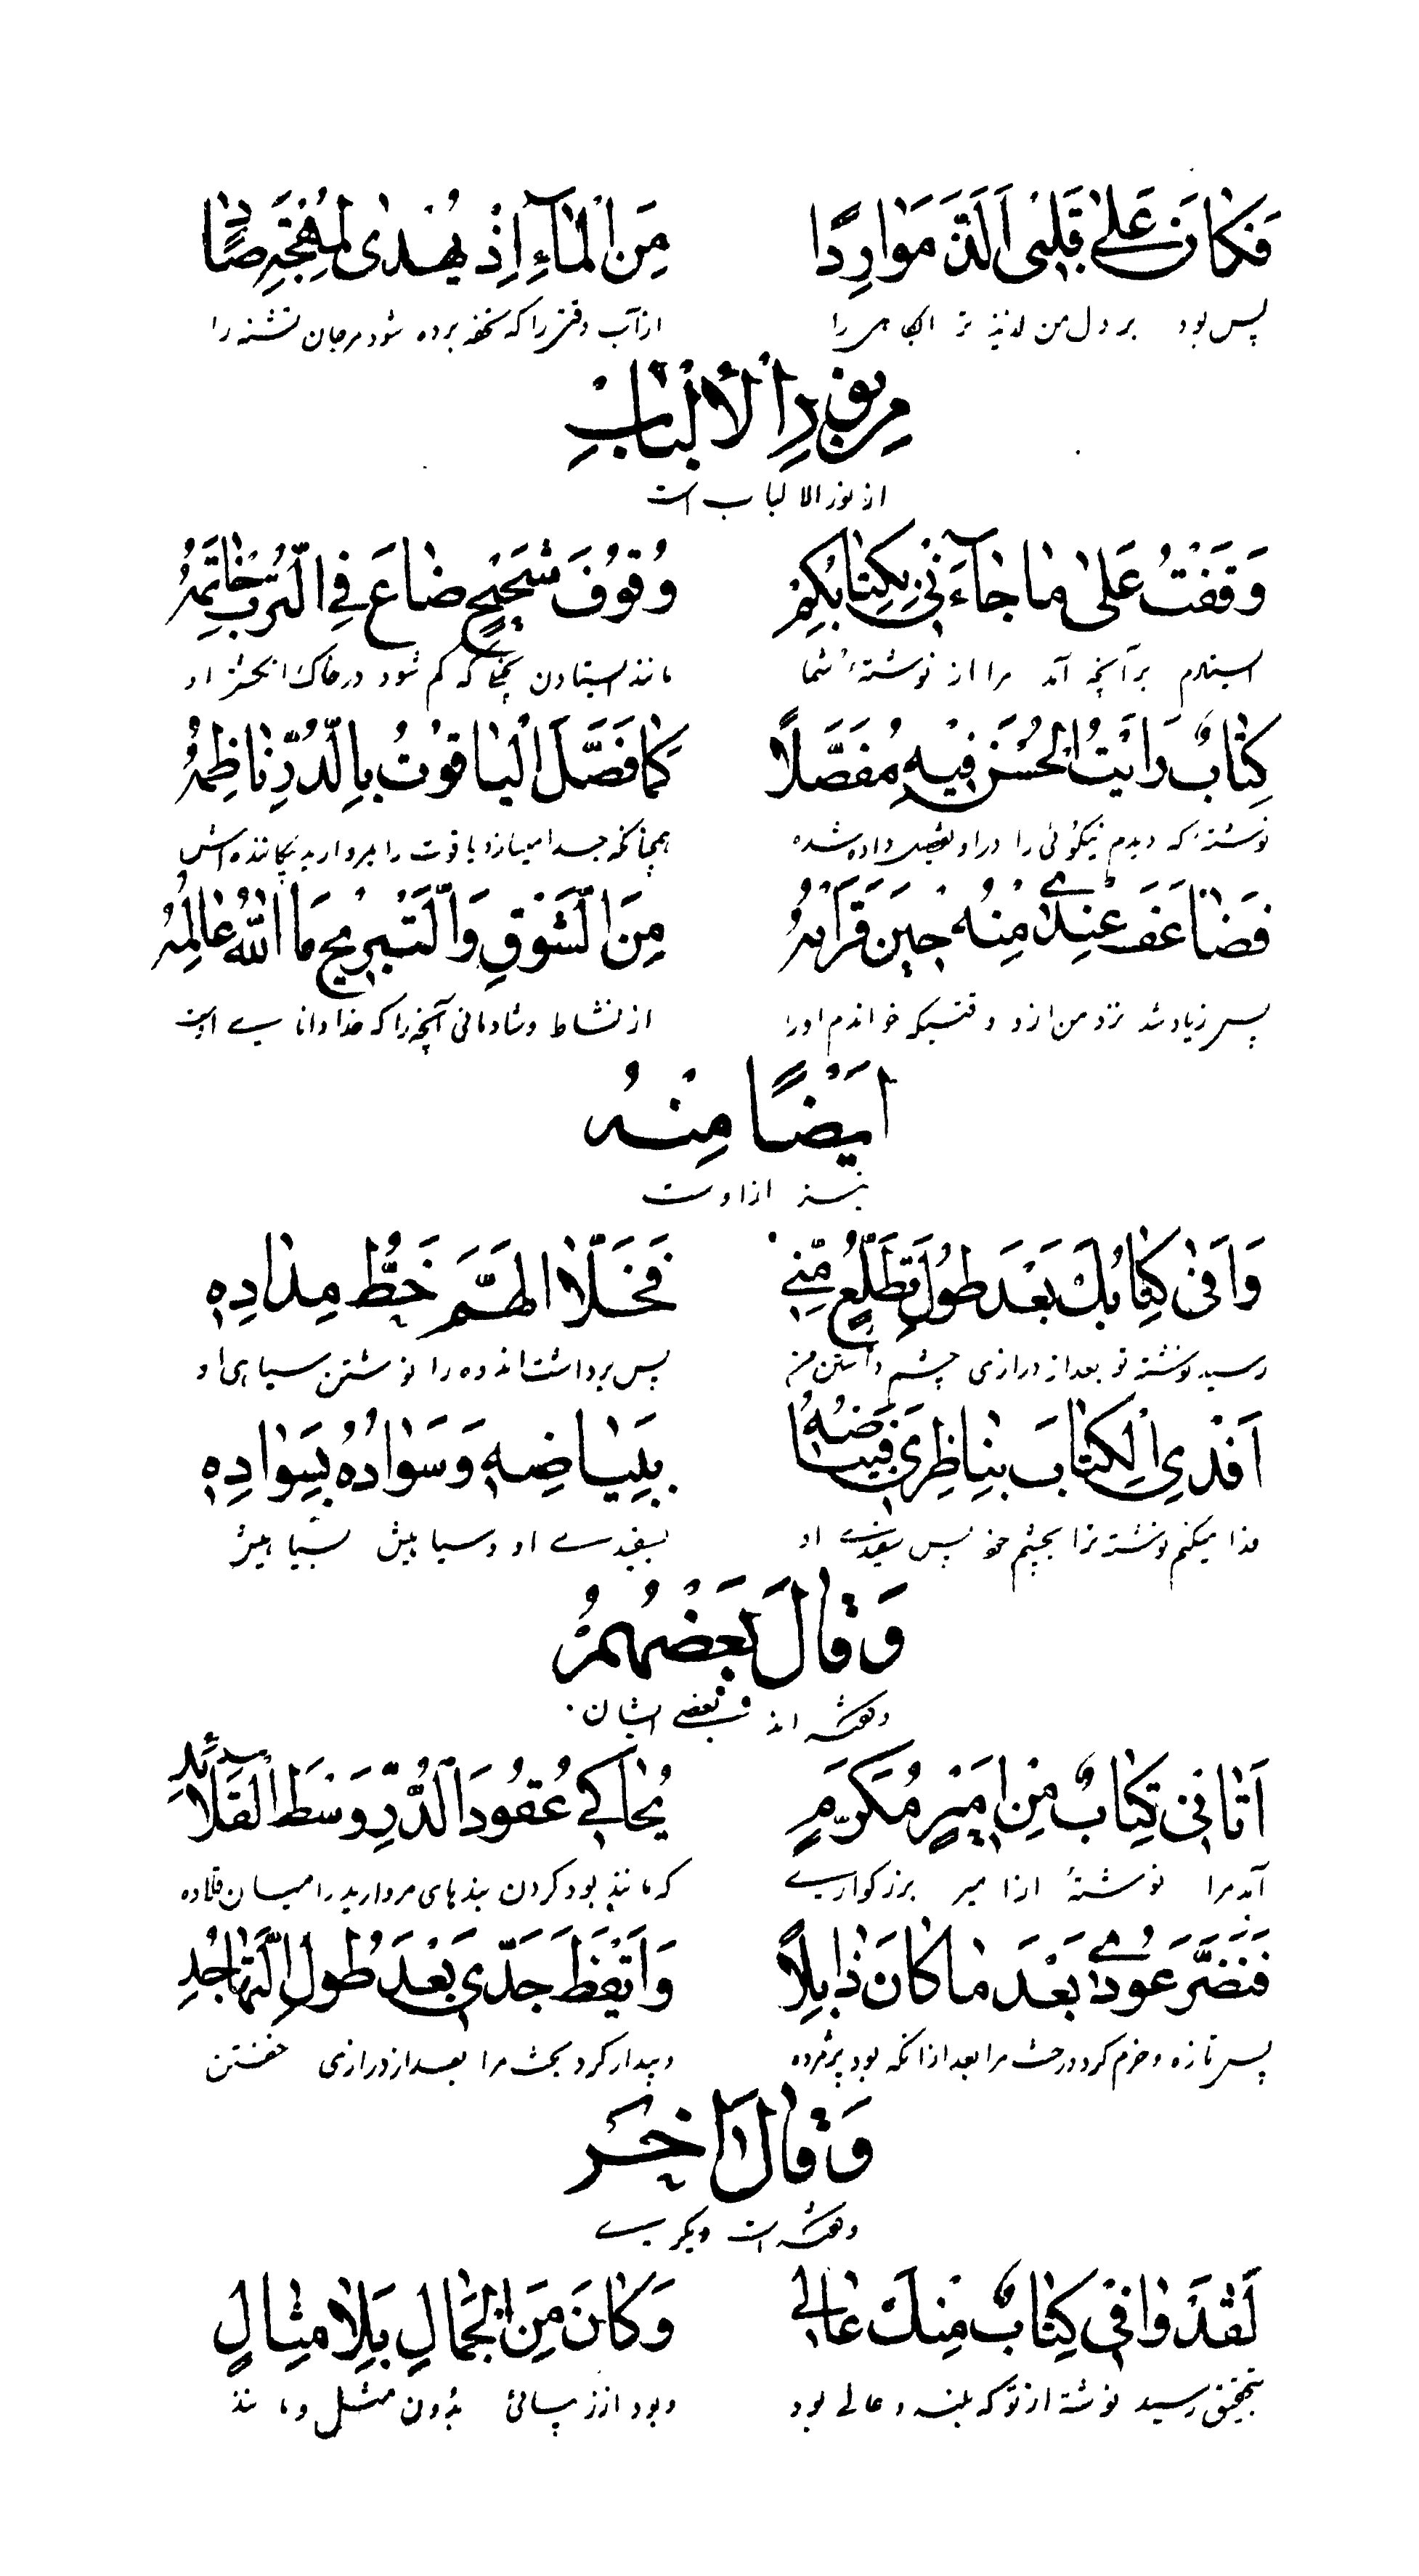 فَكَانَ عَلٰى قَلْبِى اَلَذَّ مَوَارِدًا مِنَ الْمَآءِ اِذْ يُهْدٰى لِمُهْجَةِ صَادٍ
پس بود بر دل من لذیذ تر از آب وقتیرا که تحفه برده شود مرجان تشنه را
مِنْ نُوْرِ الْاَلْبَابِ
از نور الالباب است
وَقَفْتُ عَلٰى مَا جَآءَنِىْ بِكِتَابِكُمْ وُقُوْفَ شَحِيْحٍ ضَاعَ فِى التُّرْبِ خَاتَمُهُ
ایستادم بر آنچه آمد مرا از نوشتهٔ شما مانند ایستادن که گم شود در خاک انگشتر او
كِتَابٌ رَاَيْتُ الْحُسْنَ فِيْهِ مُفَصَّلًا كَمَا فَصَّلَ الْيَاقُوْتُ بِالدُّرِّ نَاظِمُهُ
نوشتهٔ که دیدم نیکوئی را در او تفصیل داده شده همچنانکه جدا میسازد یاقوت را بمروارید
فَضَاعَفَ عِنْدِىْ مِنْهُ حِيْنَ قَرَاْتُهُ مِنَ الشَّوْقِ وَالتَّبْرِيْحِ مَا اللّٰهُ عَالِمُهُ
پس زیاد شد نزد من ازو وقتیکه خواندم او را از نشاط و شادمانی آنچه را که خدا دانا
اَيْضًا مِنْهُ
نیز از اوست
وَافٰى كِتَابُكَ بَعْدَ طُوْلِ تَطَلُّعٍ مِّنِّىْ فَخَلَا الْهَمَّ خَطُّ مِدَادِهٖ
رسید نوشته تو بعد از درازی چشم داشتن من پس برداشت اندوه را نوشتن سیاهی او
اَفْدِى الْكِتَابَ بِنَاظِرِىْ فَبَيَاضُهُ بِبَيَاضِهٖ وَسَوَادُهُ بِسَوَادِهٖ
فدا میکنم نوشته ترا بچشم خود پس سفیدی او بسفیدی او و سیاهیش بسیاهیش
وَقَالَ بَعْضُهُمْ
و گفته اند بعضے ایشان
اَتَانِىْ كِتَابٌ مِنْ اَمِيْرٍ مُكَرَّمٍ يُحَاكِىْ عُقُوْدَ الدُّرِّ وَسَطَ الْقَلَائِدِ
آمد مرا نوشتهٔ از امیر بزرگواری که مانند بود کردن بندهای مروارید را میان قلاده
فَنَضَّرَ عُوْدِىْ بَعْدَ مَا كَانَ ذَابِلًا وَاَيْقَظَ جَدِّىْ بَعْدَ طُوْلِ التَّهَاجُدِ
پس تازه و خرم کرد درخت مرا بعد از انکه بود پژمرده و بیدار کرد بخت مرا بعد از درازی خفتن
وَقَالَ اٰخَر
و گفته است دیگرے
لَقَدْ وَافٰى كِتَابٌ مِنْكَ عَالِىْ وَكَانَ مِنَ الْجَمَالِ بِلَا مِثَالٍ
بتحقیق رسید نوشته از تو که بلند و عالی بود و بود از زیبائی بدون مثل و مانند